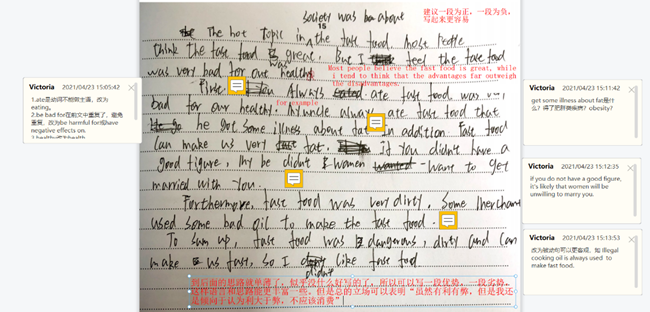 society was about
建议一段为正，一段为负，
写起来更容易
15
The hot topic in the fast food. most people
think the fast food is great. But I feel the fast food
was very bad for our health
Most people believe the fast food is great, while
i tend to think that the advantages far outweigh
the disadvantages.
First You Always ate fast food was
for example
bad for our healthy. My uncle always ate fast food that
he got some illness about fat in addition. Fast food
can make us very fat. if you didn't have a
good figure, my be didn't women want to get
married with you.
Furthermore, fast food was very dirty. Some merchant
used some bad oil to make the fast food.
To sum up, fast food was dangerous, dirty and can
make us fast, so I like fast food
didn't
到后面的思路就单薄了，似乎没什么好写的了，所以可以写一段优势，一段劣势，
这样语言和思路能更丰富一些，但是总的立场可以表明“虽然有利有弊，但是我还
是倾向于认为利大于弊，不应该消费”
Victoria 2021/04/23 15:05:42
1.ate是动词不能做主语，改为
eating,
2.be bad for在前文中重复了，避免
重复，改为be harmful for或have
negative effects on.
Victoria 2021/04/23 15:11:42
get some illness about fat是什
么？得了肥胖类疾病？obesity?
Victoria 2021/04/23 15:12:35
if you do not have a good figure,
it's likely that women will be
unwilling to marry you.
Victoria 2021/04/23 15:13:53
改为被动句可以更客观，如 Illegal
cooking oil is always used to
make fast food.